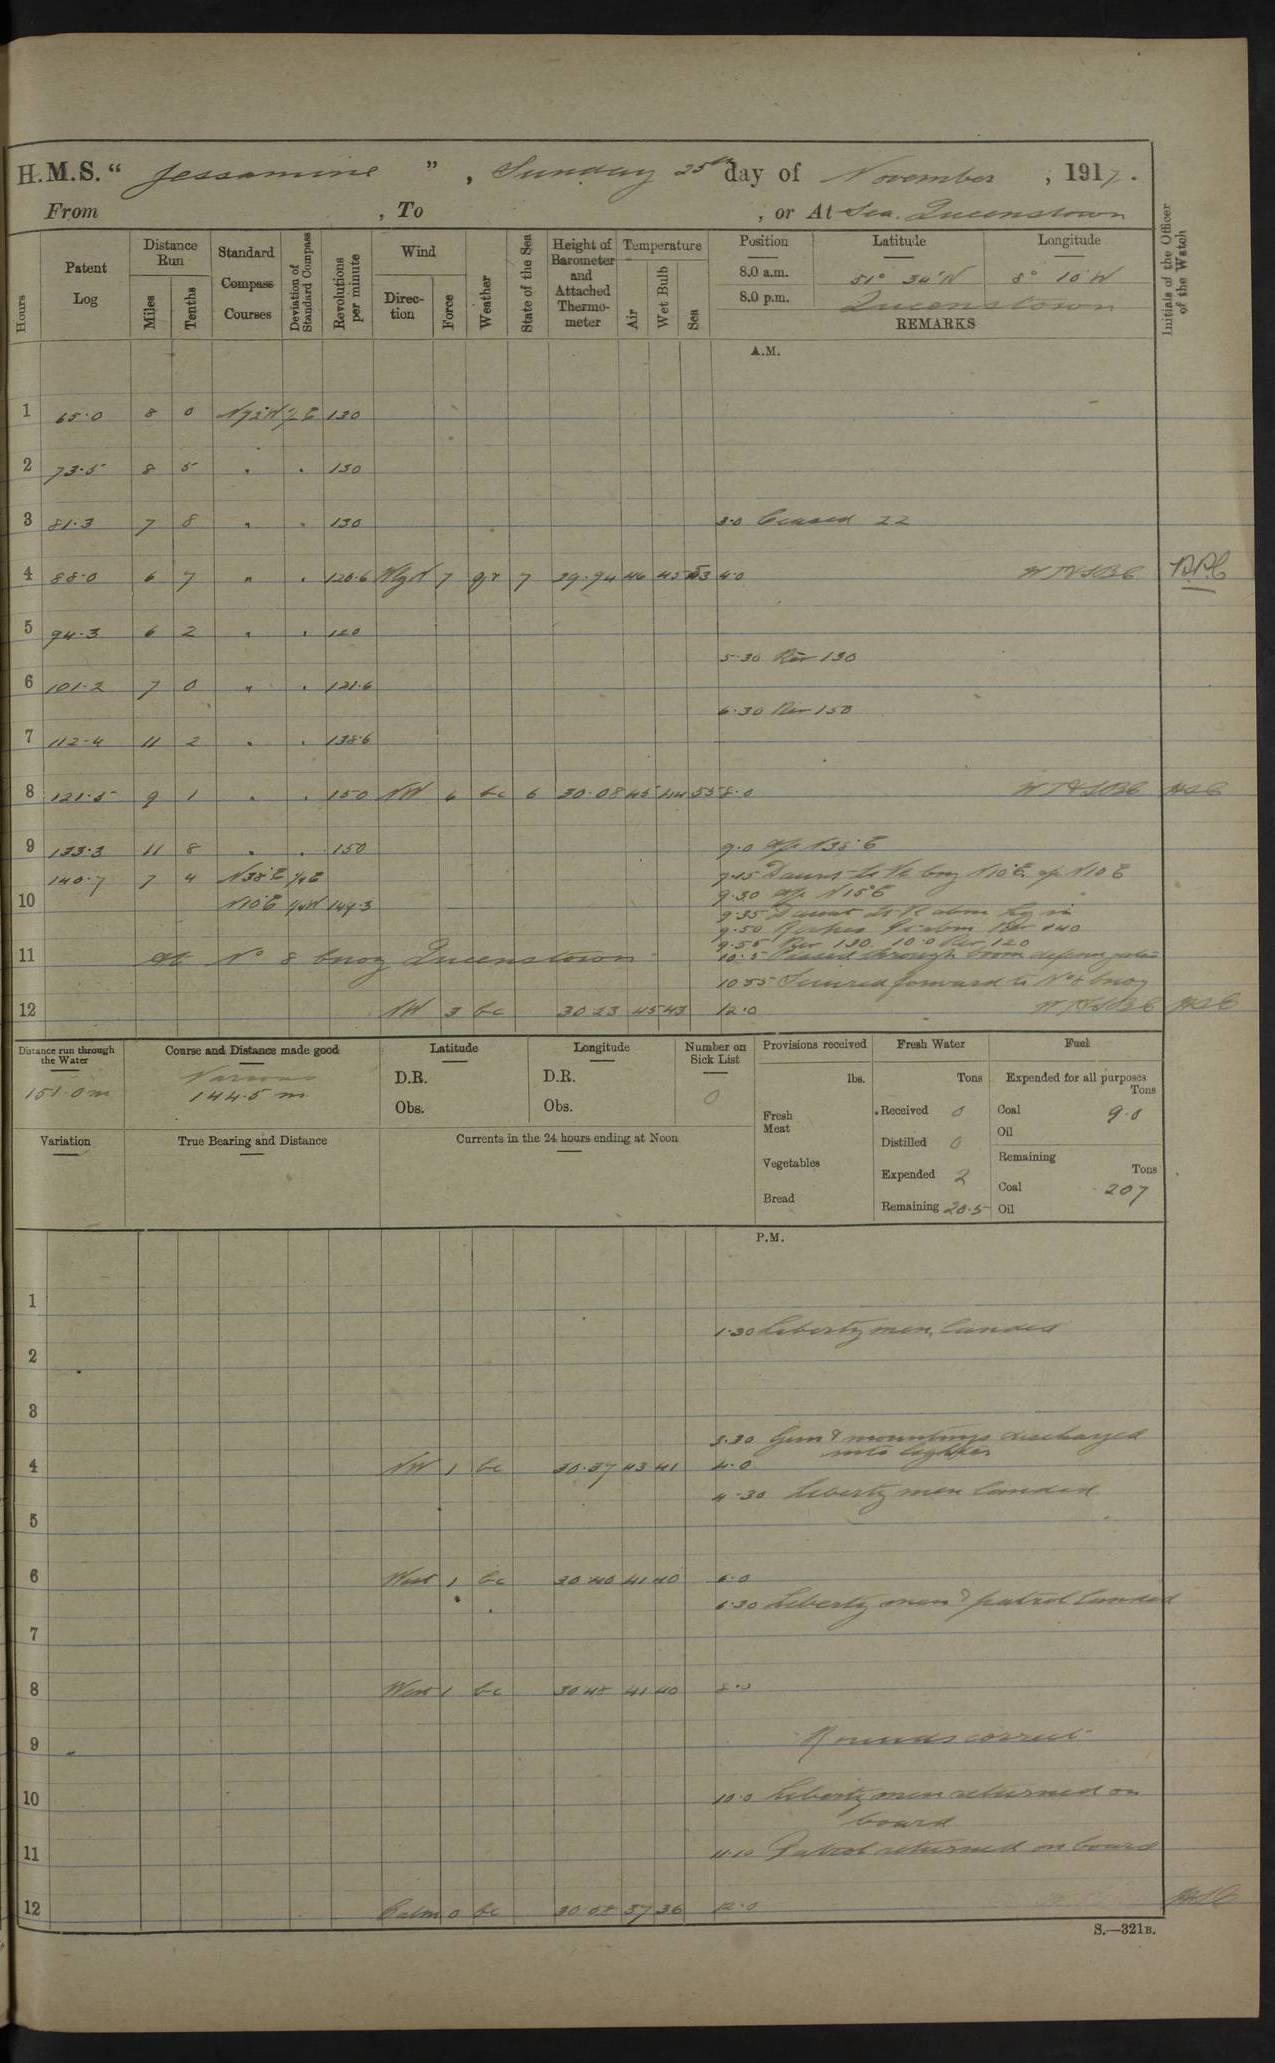 H.M.S. “ Jessamine ” , Sunday 25th day of November , 1917.
From , To , or At Sea. Queenstown
Hours
Patent Log
Distance Run
Miles
Tenths
Standard Compass Courses
Deviation of Standard Compass
Revolutions per minute
Wind
Direc- tion
Force
Weather
State of the Sea
Height of Barometer and Attached Thermo- meter
Temperature
Air
Wet Bulb
Sea
Position Latitude Longitude
8.0 a.m. 51° 34'N 8° 10'W
8.0 p.m. Queenstown
REMARKS
Initials of the Officer of the Watch
A.M.
1 65.0 8 0 130
2 73.5 8 5 " " 130
3 81.3 7 8 " " 130 3.0 Ceased 22
4 88.0 6 7 " " 120.6 7 qr 7 29.94 46 45 53 4.0
5 94.3 6 2 " " 120
5.30 Rev 130
6 101.2 7 0 " " 121.6
6.30 Rev 150
7 112.4 11 2 " " 138.6
8 121.5 9 1 " " 150 NW 6 bc 6 30.08 45 44 55 8.0
9 133.3 11 8 " " 150 9.0 a/c N38°E
140.7 7 4 N38°E 1/4E 9.15 Daunt Lt Ve brg N10°E a/c N10E
10 N10°E 1/4W 149.3 9.30 a/c N15°E
9.35 Daunt Lt V abm
9.50 Rev 140
9.55 Rev 130. 10.0 Rev 120
11 At No 8 buoy Queenstown 10.5 Passed through boom defence gates
10.55 Secured forward to No 8 buoy
12 NW 3 bc 30.23 45 43 12.0
Distance run through the Water
151.0 m
Course and Distance made good
Various
144.5 m
Latitude
D.R.
Obs.
Longitude
D.R.
Obs.
Number on Sick List
0
Provisions received
lbs.
Fresh Meat
Vegetables
Bread
Fresh Water
Tons
Received 0
Distilled 0
Expended 2
Remaining 20.5
Fuel
Expended for all purposes
Tons
Coal 9.0
Oil
Remaining
Tons
Coal 207
Oil
Variation
True Bearing and Distance
Currents in the 24 hours ending at Noon
P.M.
1
1.30 Liberty men landed
2
3
3.30 Gun & mountings discharged
into lighter
4 NW 1 bc 30.37 43 41 4.0
4.30 Liberty men landed
5
6 West 1 bc 30.40 41 40 6.0
6.30 Liberty men & patrol landed
7
8 West 1 bc 30.48 41 40 8.0
9 Rounds correct
10 10.0 Liberty men returned on
board
11 11.10 Patrol returned on board
12 Calm 0 bc 37 36 12.0
S.—321B.